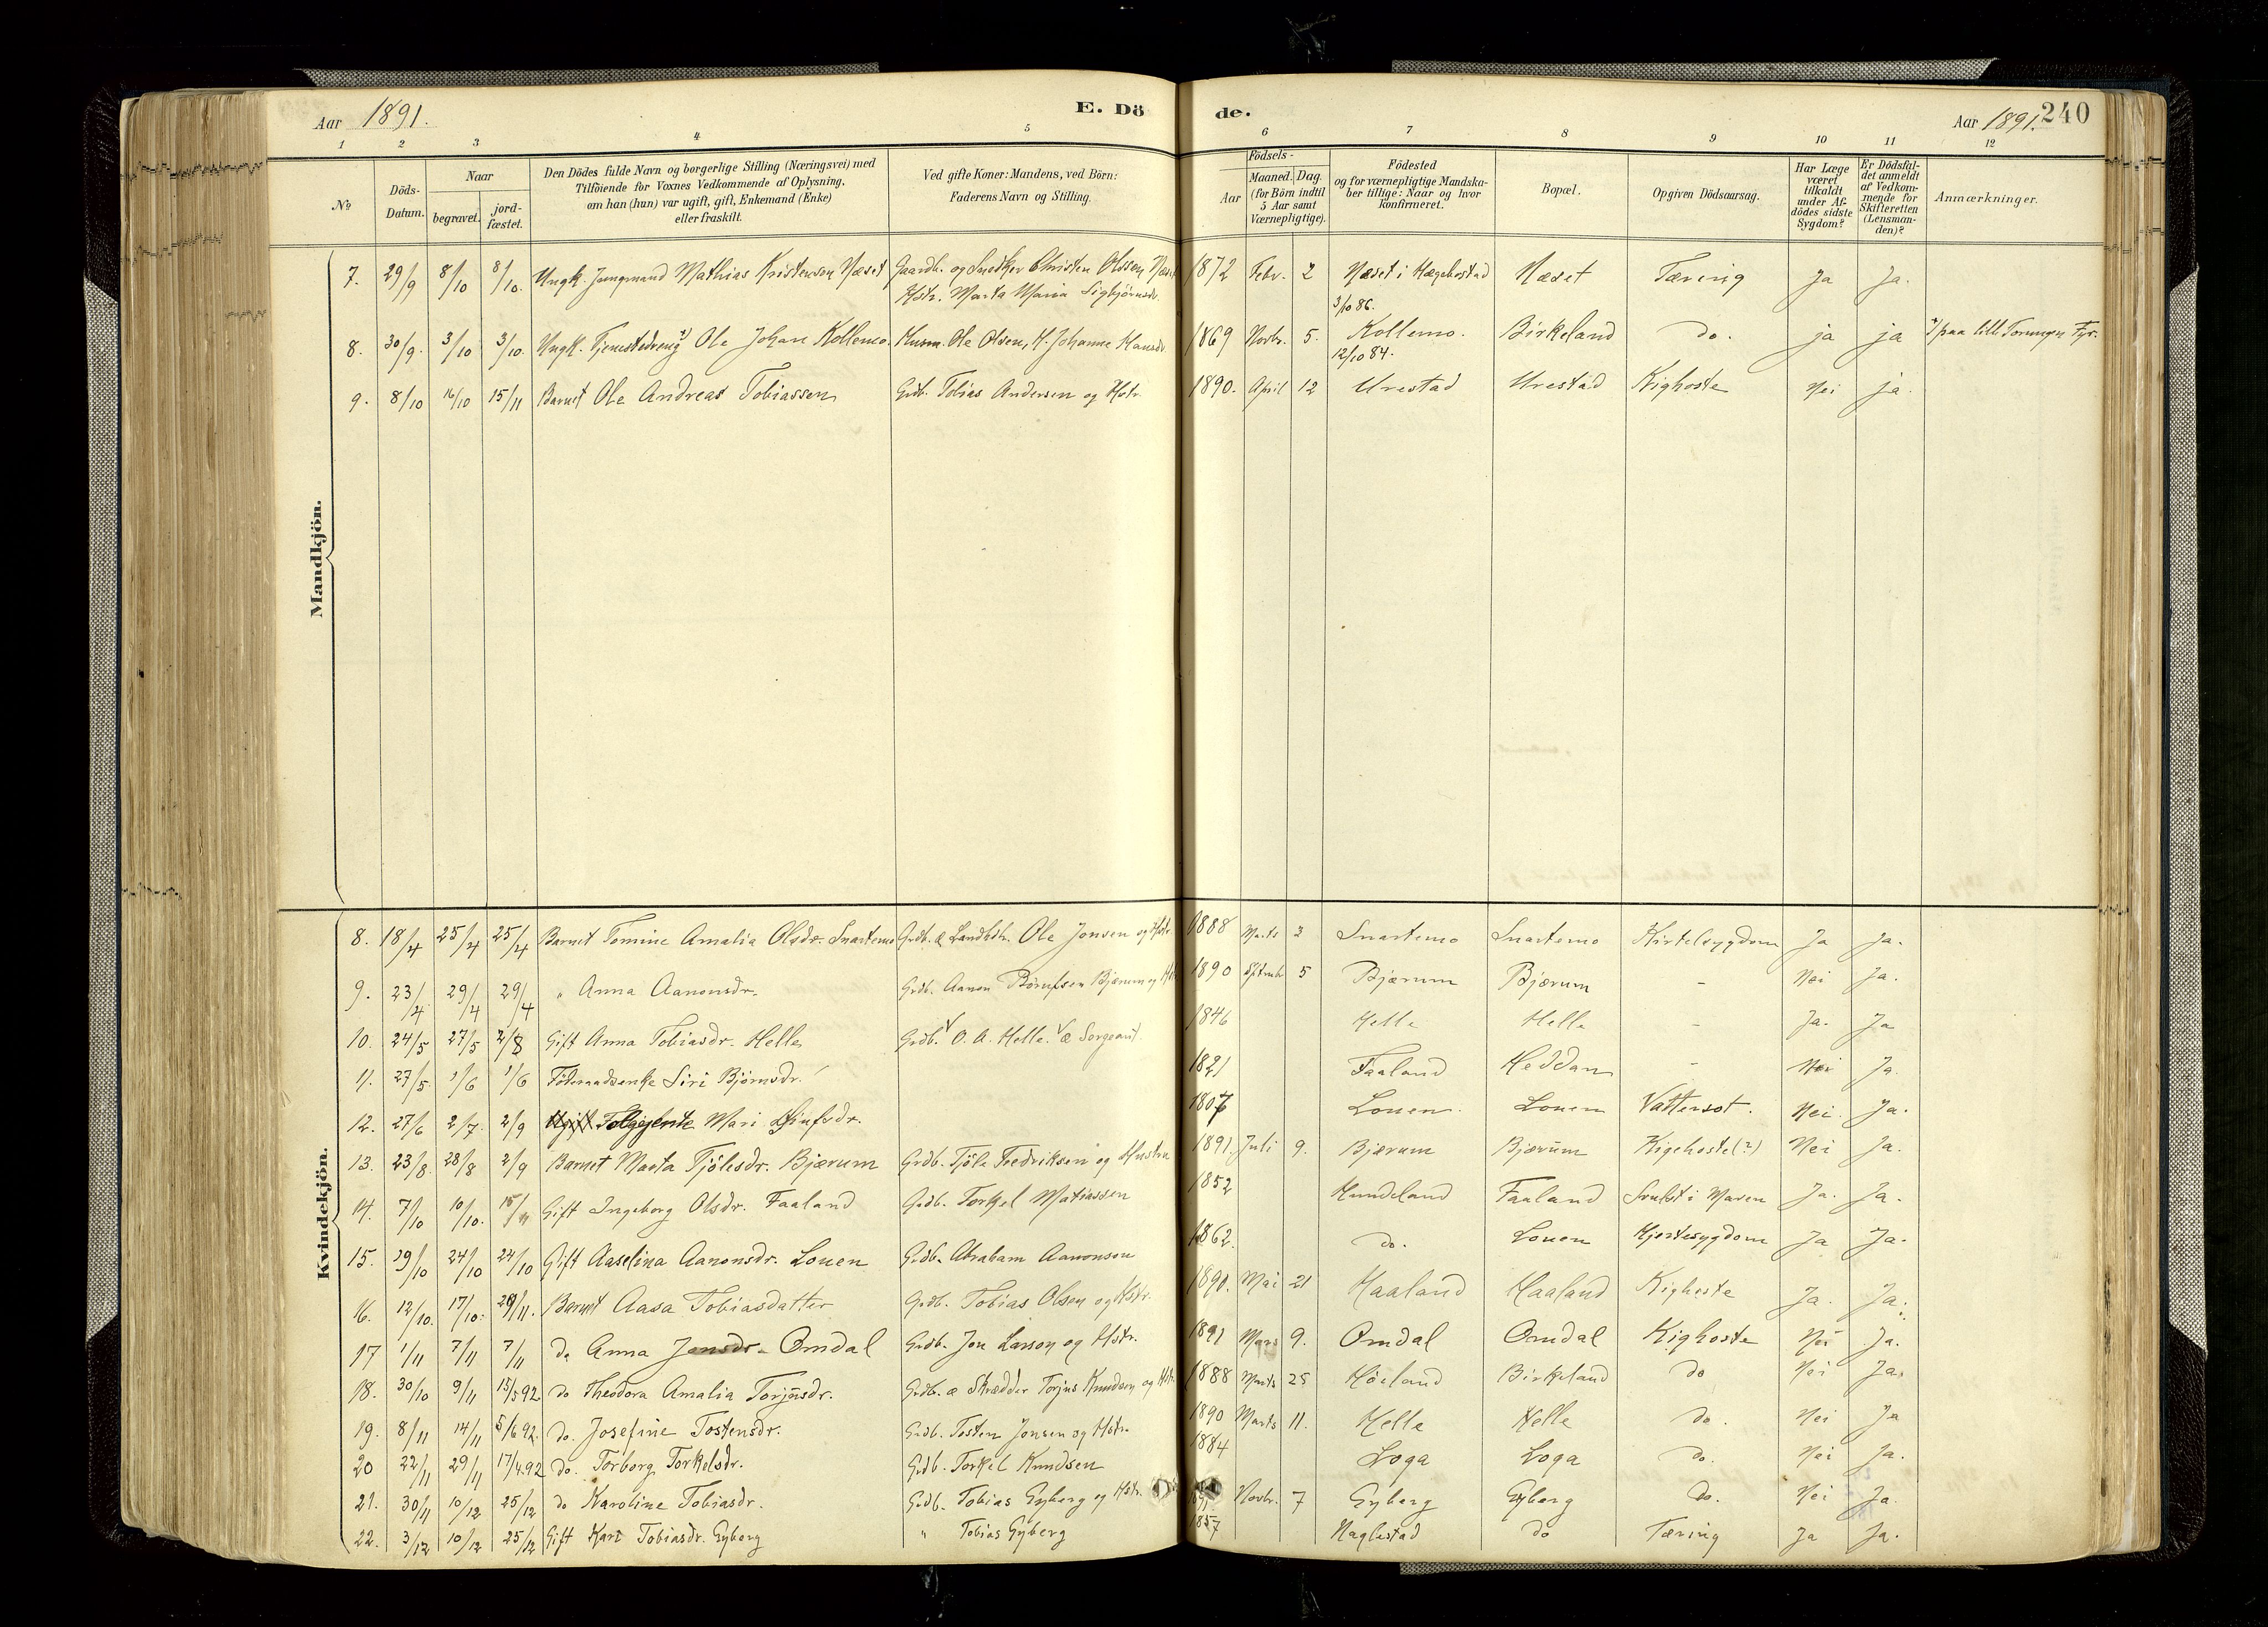 Aar 1891.
E. Dö
de.
Aar 1891.
240
1 2 3 4 5 6 7 8 9 10 11 12
No
Döds-Datum.
Naar
begravet.
jord-fæstet.
Den Dödes fulde Navn og borgerlige Stilling (Næringsvei) med
Tilföiende for Voxnes Vedkommende af Oplysning,
om han (hun) var ugift, gift, Enkemand (Enke)
eller fraskilt.
Ved gifte Koner: Mandens, ved Börn:
Faderens Navn og Stilling.
Födsels-
Aar
Maaned. Dag.
(for Börn indtil
5 Aar samt
Værnepligtige).
Födested
og for værnepligtige Mandska-
ber tillige: Naar og hvor
konfirmeret.
Bopæl.
Opgiven Dödsaarsag.
Har Læge
været
tilkaldt
under Af-
dödes sidste
Sygdom?
Er Dödsfal-
det anmeldt
af Vedkom-
mende for
Skifteretten
(Lensman-
den)?
Anmærkninger.
Mandkjön.
7. 29/9 8/10 8/10. Ungk. Jungmand Mathias Kristensen Næset Gaardb. og Snedker Christen Olssen Næset 1872 Febr. 2 Næset i Hægebostad Næset Tæring Ja Ja.
Hstr. Marta Maria Sigbjörnsdr. 3/10 86.
8. 30/9. 3/10 3/10. Ungk. Tjenestedreng Ole Johan Kollemo Husm. Ole Olsen, H. Johanne Hansdr 1869 Novbr. 5. Kollemo. Birkeland do. ja ja paa lille Torungen Fyr.
12/10 84.
9. 8/10 16/10 15/11 Barnet Ole Andreas Tobiassen Grdb. Tobias Andersen og Hstr. 1890. April 12 Urestad Urestad Kighoste Nei ja.
Kvindekjön.
8. 18/4 25/4 25/4 Barnet Tomine Amalia Olsdr. Snartemo Grdb. & Landhdr. Ole Jonsen og Hstr. 1888 Marts 2 Snartemo Snartemo Kirtelsygdom Ja Ja.
9. 23/4 29/4 29/4 " Anna Aanonsdr. Grdb. Aanen Börufsen Bjærum og Hstr 1890 Sptmbr 5 Bjærum Bjærum - Nei Ja.
10. 24/5 27/5 2/8 Gift Anna Tobiasdr. Helle Grdb. O. A. Helle. & Sergeant. 1846 Helle Helle - Ja. Ja
11. 27/5. 1/6 1/6 Föderaadsenke Siri Bjørnsdr. 1821 Faaland Heddan - Nei Ja.
12. 27/6 2/7. 2/9 Ugift Følgejente Mari 1807 Louen. Louen Vattersot. Nei. Ja.
13. 23/8. 28/8 2/9 Barnet Marta Tjölesdr. Bjærum Grdb. Tjöle Fredriksen og Hustru 1891. Juli 9. Bjærum Bjærum Kigehoste(?) Nei Ja.
14. 7/10 10/10. 15/11 Gift Ingeborg Olsdr. Faaland Grdb. Torkel Matiassen 1852 Hundeland Faaland Svulst i Maven Ja. Ja.
15. 19/10 24/10 24/10 Gift Aaselina Aanonsdr. Louen Grdb. Abraham Aanonsen 1862. do. Louen Hjertesygdom Ja Ja.
16. 12/10. 17/10. 29/11. Barnet Aasa Tobiasdatter Grdb. Tobias Olsen og Hstr. 1890. Mai 21 Haaland Haaland Kighoste Ja. Ja.
17 1/11 7/11 7/11 do Anna Jonsdr. Omdal Grdb. Jon Larson og Hstr. 1891 Mars 9. Omdal Omdal Kighoste Nei Ja.
18. 30/10 9/11 15/5 92 do Theodora Amalia Torjusdr. Grdb. & Skrædder Torjus Knudsen og Hstr. 1888 Marts 25 Höeland Birkeland do Nei Ja.
19. 8/11 14/11 5/6 92. do. Josefine Tostensdr. Grdb. Tosten Jonsen og Hstr. 1890 Marts 11. Helle Helle do. Nei Ja
20 22/11 29/11 17/4 92 do. Torborg Torkelsdr. Grdb. Torkel Knudsen 1884 Loga Loga do. Nei Ja.
21. 30/11 10/12 25/12 do Karoline Tobiasdr. Grdb. Tobias Eyberg og Hstr. Novbr. 7 Eyberg Eyberg do. Nei Ja.
22. 3/12 10/12 25/12 Gift Kari Tobiasdr. Eyberg " Tobias Eyberg 1857 Naglestad do Tæring Ja Ja.